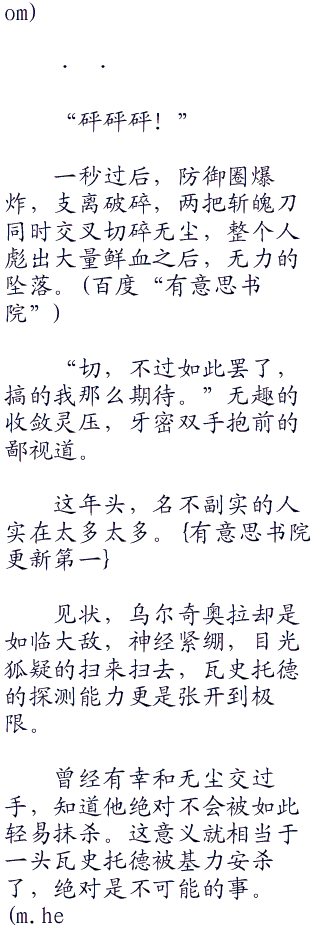 om)
. .
“砰砰砰！”
一秒过后，防御圈爆
炸，支离破碎，两把斩魄刀
同时交叉切碎无尘，整个人
彪出大量鲜血之后，无力的
坠落。(百度“有意思书
院”)
“切，不过如此罢了，
搞的我那么期待。”无趣的
收敛灵压，牙密双手抱前的
鄙视道。
这年头，名不副实的人
实在太多太多。{有意思书院
更新第一}
见状，乌尔奇奥拉却是
如临大敌，神经紧绷，目光
狐疑的扫来扫去，瓦史托德
的探测能力更是张开到极
限。
曾经有幸和无尘交过
手，知道他绝对不会被如此
轻易抹杀。这意义就相当于
一头瓦史托德被基力安杀
了，绝对是不可能的事。
(m.he